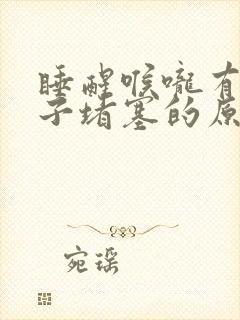 睡醒喉咙有
子堵塞的原
宛瑶